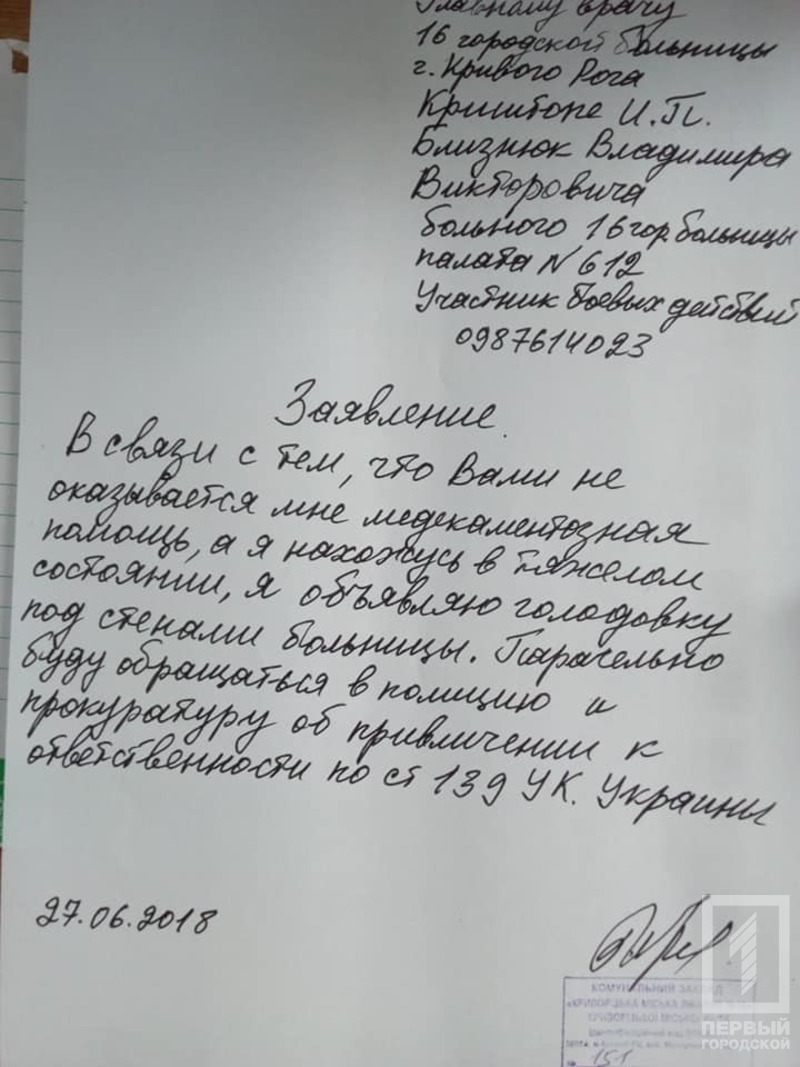 Главному врачу
16 городской больницы
г. Кривого Рога
Криштопе И.П.
Близнюк Владимира
Викторовича
больного 16 гор. больницы
палата № 612
Участник боевых действий
0987614023
Заявление.
В связи с тем, что Вами не
оказывается мне медекаментозная
помощь, а я нахожусь в тяжелом
состоянии, я объявляю голодовку
под стенами больницы. Парасельно
буду обращаться в полицию и
прокуратуру об привличении к
ответственности по ст 139 УК. Украины
27.06.2018
КОМУНАЛЬНИЙ ЗАКЛАД
№ 151
1
ПЕРВЫЙ
ГОРОДСКОЙ